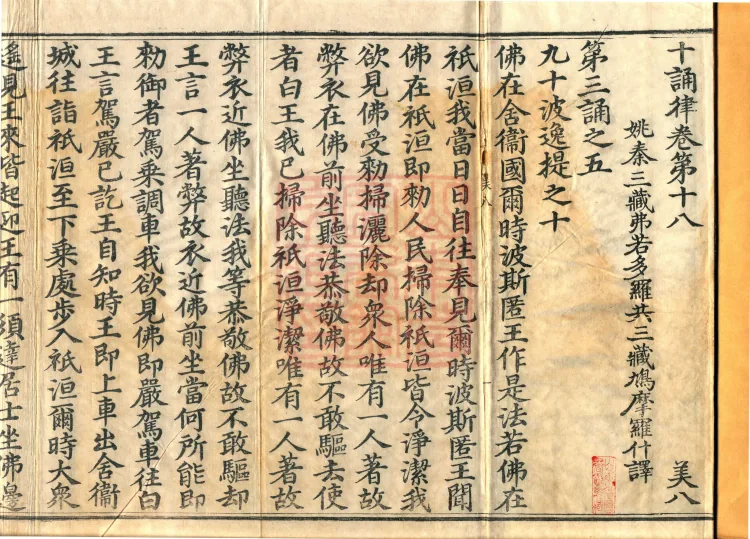 十誦律卷第十八 美八
姚秦三藏弗若多羅共三藏鳩摩羅什譯
第三誦之五
九十波逸提之十
佛在舍衛國爾時波斯匿王作是法若佛在
祇洹我當日日自往奉見爾時波斯匿王聞
佛在祇洹即勑人民掃除祇洹皆令淨潔我
欲見佛受勑掃灑除却衆人唯有一人著故
弊衣在佛前坐聽法恭敬佛故不敢驅去使
者白王我已掃除祇洹淨潔唯有一人著故
弊衣近佛坐聽法我等恭敬佛故不敢驅却
王言一人著弊故衣近佛前坐當何所能即
勑御者駕乘調車我欲見佛即嚴駕車往白
王言駕嚴已訖王自知時王即上車出舍衞
城往詣祇洹至下乘處步入祇洹爾時大衆
遙見王來皆起迎王有一須達居士坐佛邊
美八